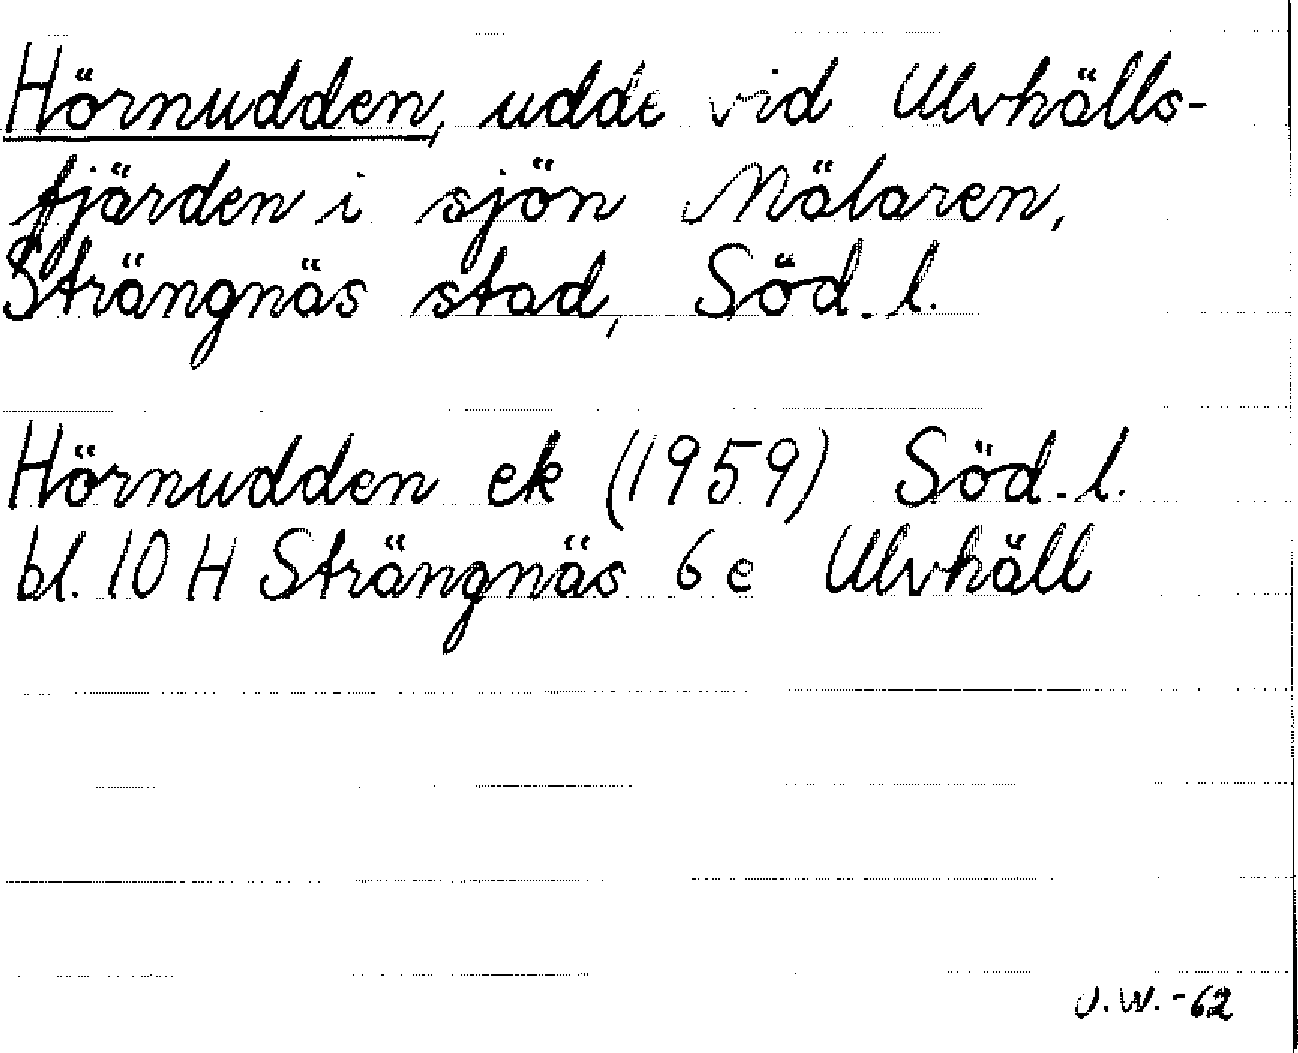 Hörnudden, udde vid Ulvhälls-
fjärden i sjön Mälaren,
Strängnäs stad, Söd. l.
Hörnudden ek (1959) Söd. l.
bl. 10 H Strängnäs 6 e Ulvhäll
U.W. -62